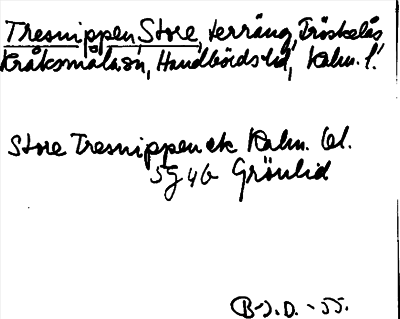 Tresnippen, Store, terräng, Tröskelås
Kråksmåla sn, Handbörds hd, Kalm. l.
Store Tresnippen ek Kalm. bl.
5G4b Grönlid
B-J.D. -55.